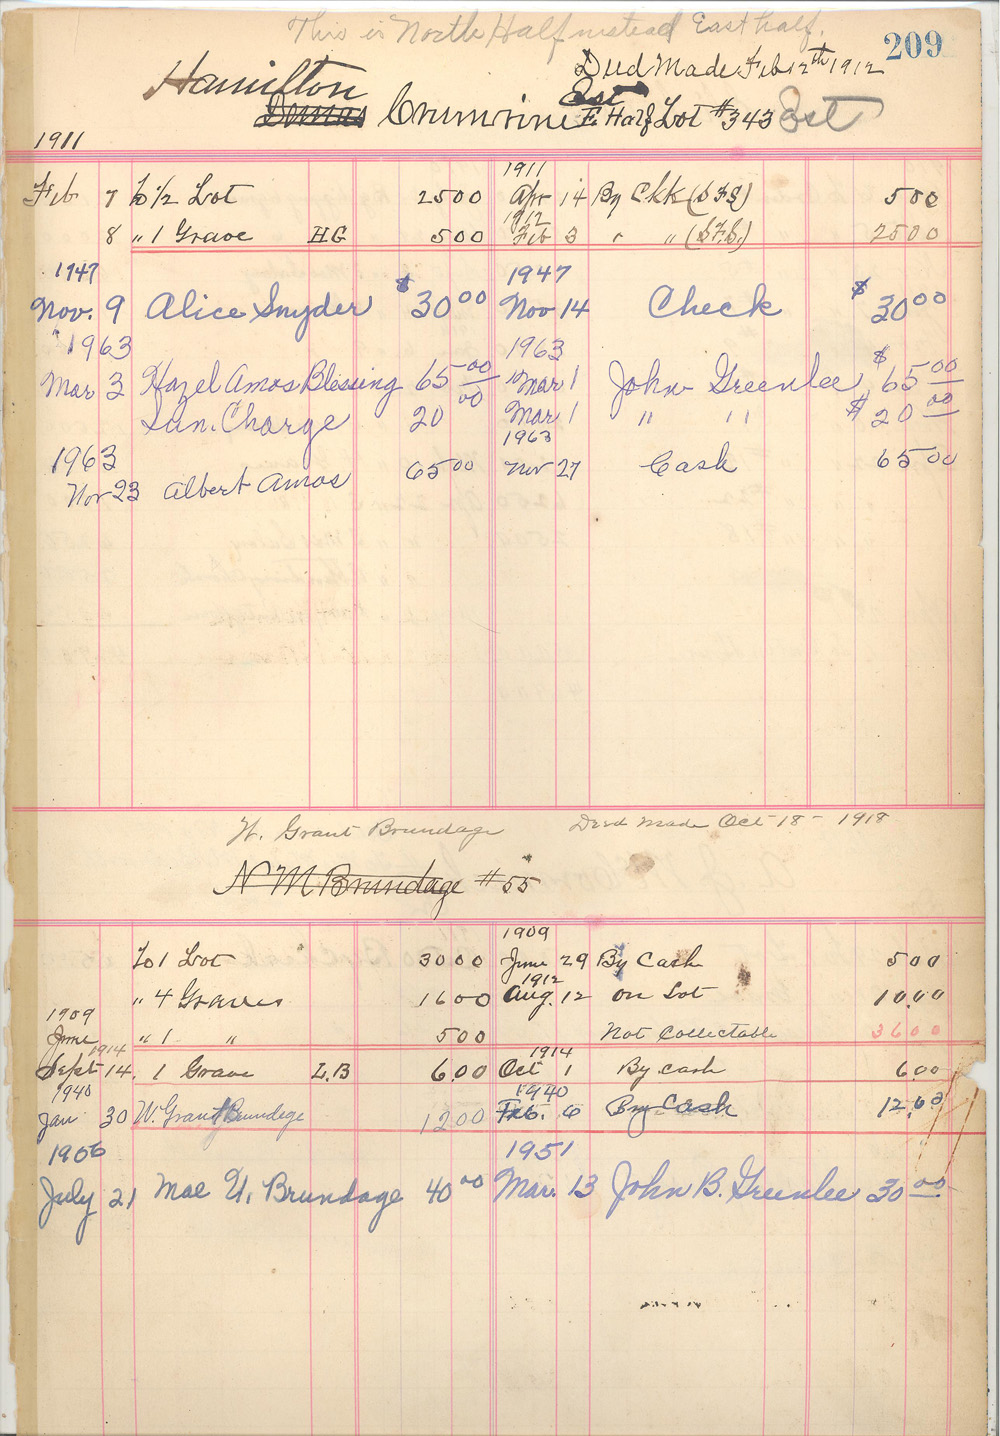 This is North Half instead East half.
209
Deed Made Feb 12th 1912
Hamilton
Crumrine E. Half Lot #343 East
East
1911
1911
Feb 7 To 1/2 Lot 2500 Apr 14 By Ckk 500
1912
8 " 1 Grave HG 500 Feb 3 " " 2500
1947 1947
Nov. 9 Alice Snyder $ 30 00 Nov 14 Check $ 30 00
" 1963 1963
Mar 3 Hazel Amos Blessing 65 00 Mar 1 John Greenlee $ 65 00
San. Charge 20 00 Mar 1 " " $ 20 00
1963 1963
Nov 23 Albert Amos 65 00 Nov 27 Cash 65 00
W. Grant Brundage Deed Made Oct-18-1918
N M Brundage #55
1909
To 1 Lot 3000 June 29 By Cash 500
1912
" 4 Graves 1600 Aug. 12 on Lot 10.00
1909
June " 1 " 500 Not Collectable 3600
1914 1914
Sept 14. 1 Grave L.B 6.00 Oct 1 By cash 6.00
1940 1940
Jan 30 W. Grant Brundage 12 00 Feb. 6 By Cash 12.00
1906 1951
July 21 Mae U. Brundage 40 00 Mar. 13 John B. Greenlee 30 00